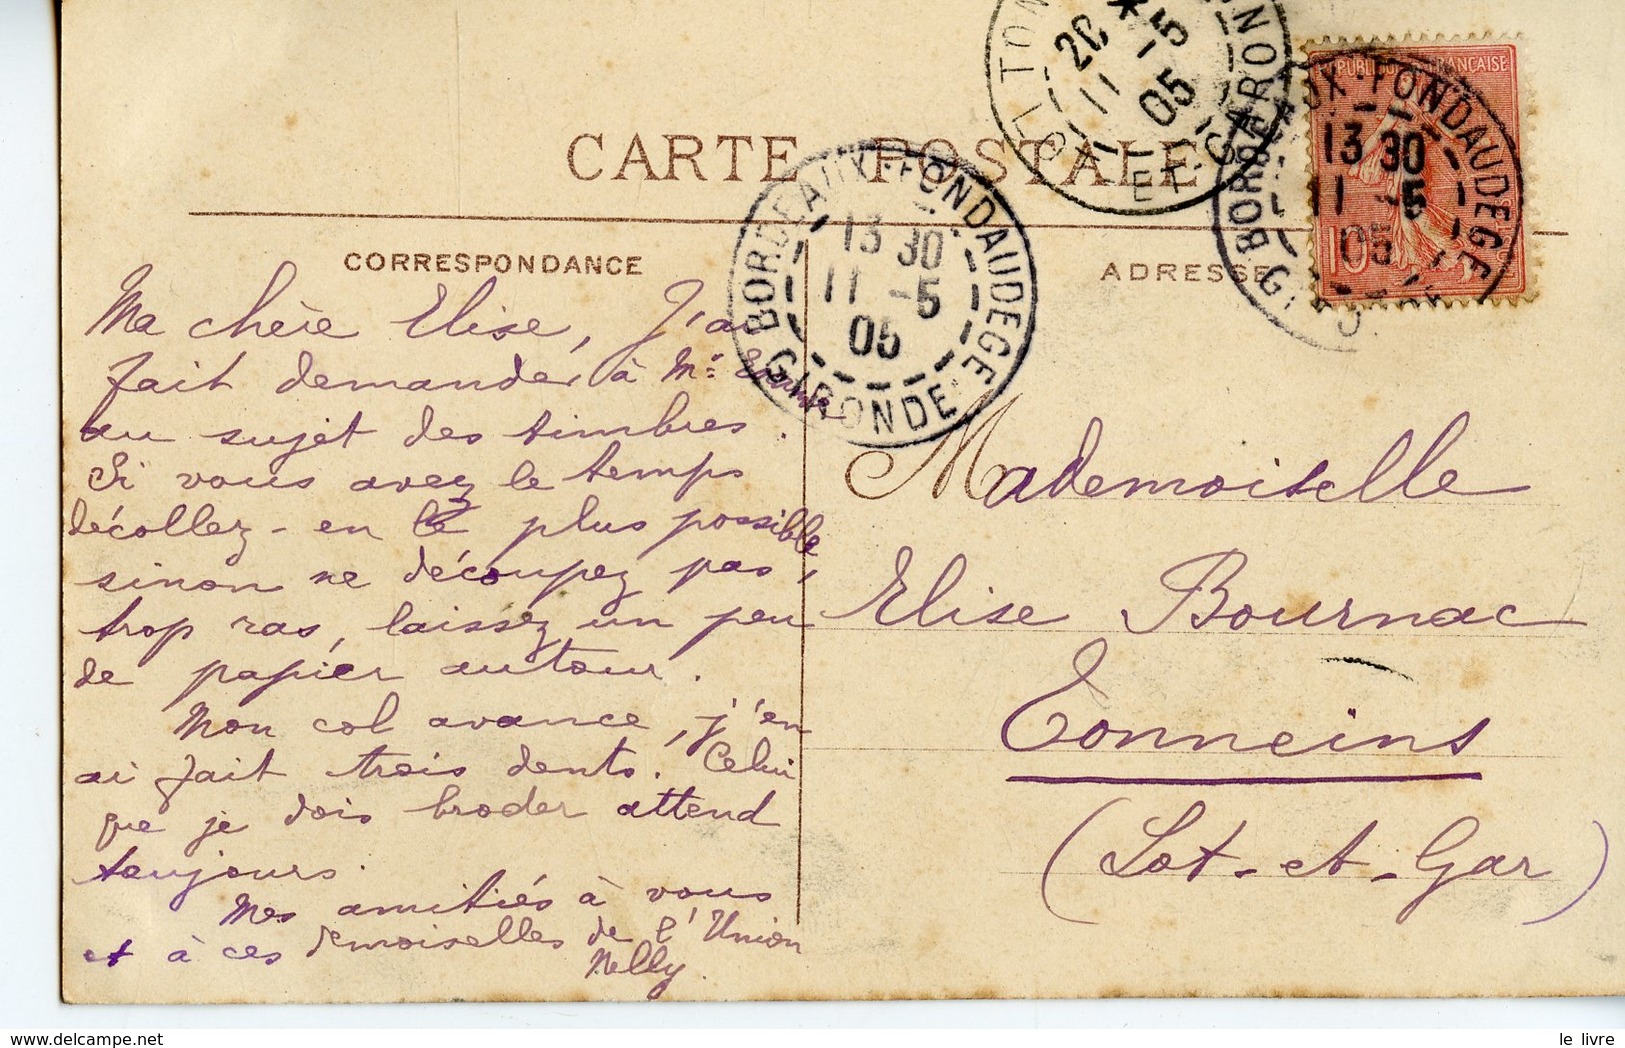 CARTE POSTALE
CORRESPONDANCE
ADRESSE
RÉPUBLIQUE FRANÇAISE
10
BORDEAUX-FONDAUDEGE
13 30
11 -5
05
GIRONDE
BORDEAUX-FONDAUDEGE
13 30
11 -5
05
GIRONDE
TON
20 *
11 -5
05
LOT-ET-GARON
Ma chère Elise, J'ai
fait demander à Mr
au sujet des timbres.
Si vous avez le temps
décollez-en le plus possible
sinon ne découpez pas,
trop ras, laissez un peu
de papier autour.
Mon col avance, j'en
ai fait trois dents. Celui
que je dois broder attend
toujours.
Mes amitiés à vous
et à ces demoiselles de l'Union
Nelly.
Mademoiselle
Elise Bournac
Tonneins
(Lot-et-Gar)
delcampe.net
le livre